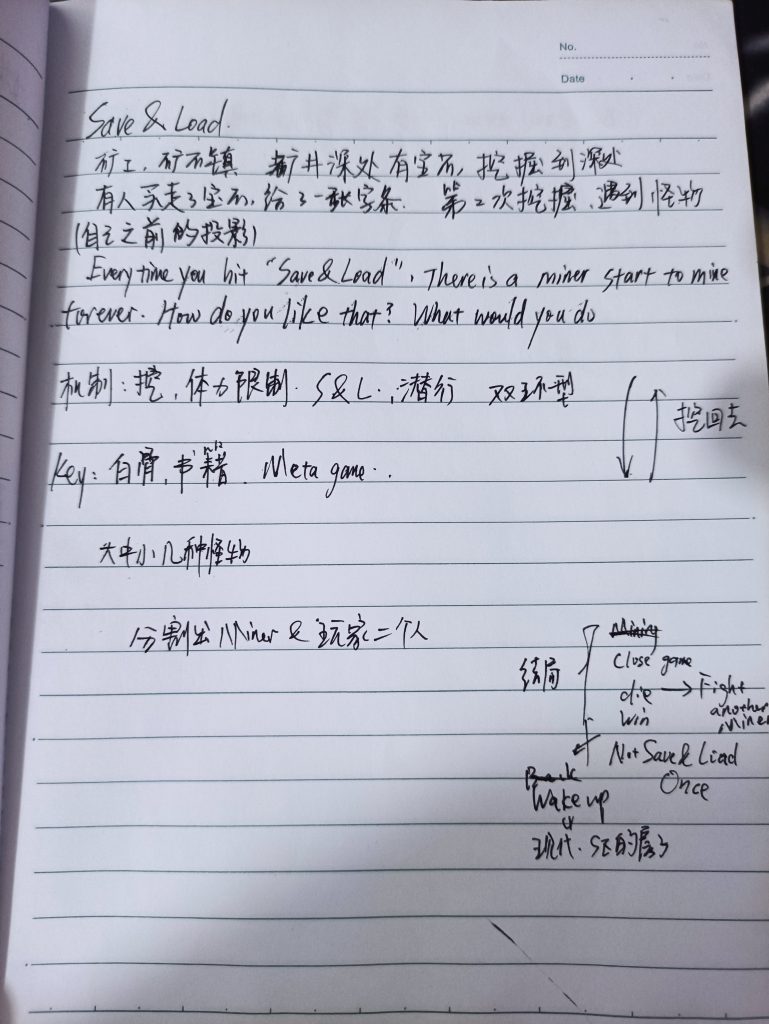 No.
Date
Save & Load.
矿工，矿石镇 矿井深处有宝石，挖掘到深处
有人买走了宝石，给了一张字条. 第2次挖掘，遇到怪物
(自己之前的投影)
Every time you hit "Save & Load", There is a miner start to mine
forever. How do you like that? What would you do
机制：挖，体力限制. S&L.，潜行 双环型
挖回去
Key: 白骨，书籍. Meta game..
大中小几种怪物
分割出 Miner & 玩家二个人
结局
Mining
Close game
die → Fight
another
Miner
win
Not Save & Load
Once
Back
Wake up
现代.